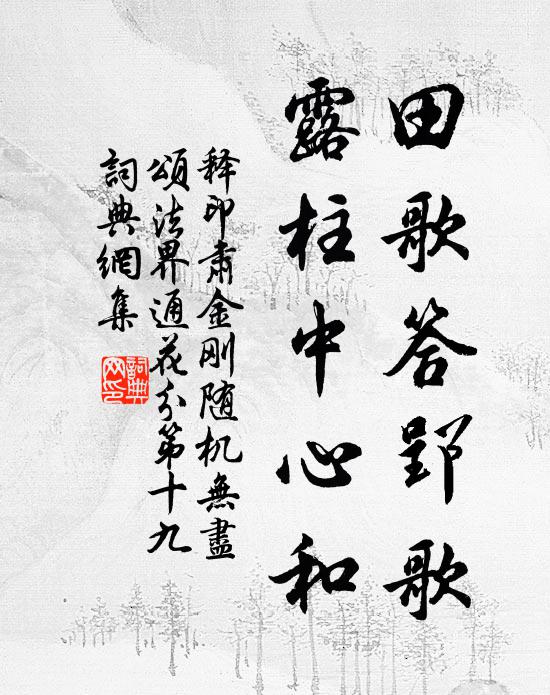 田歌答郢歌
露柱中心和
释印肃金刚随机無盡
頌法界通花分第十九
詞典網集
詞典
网印